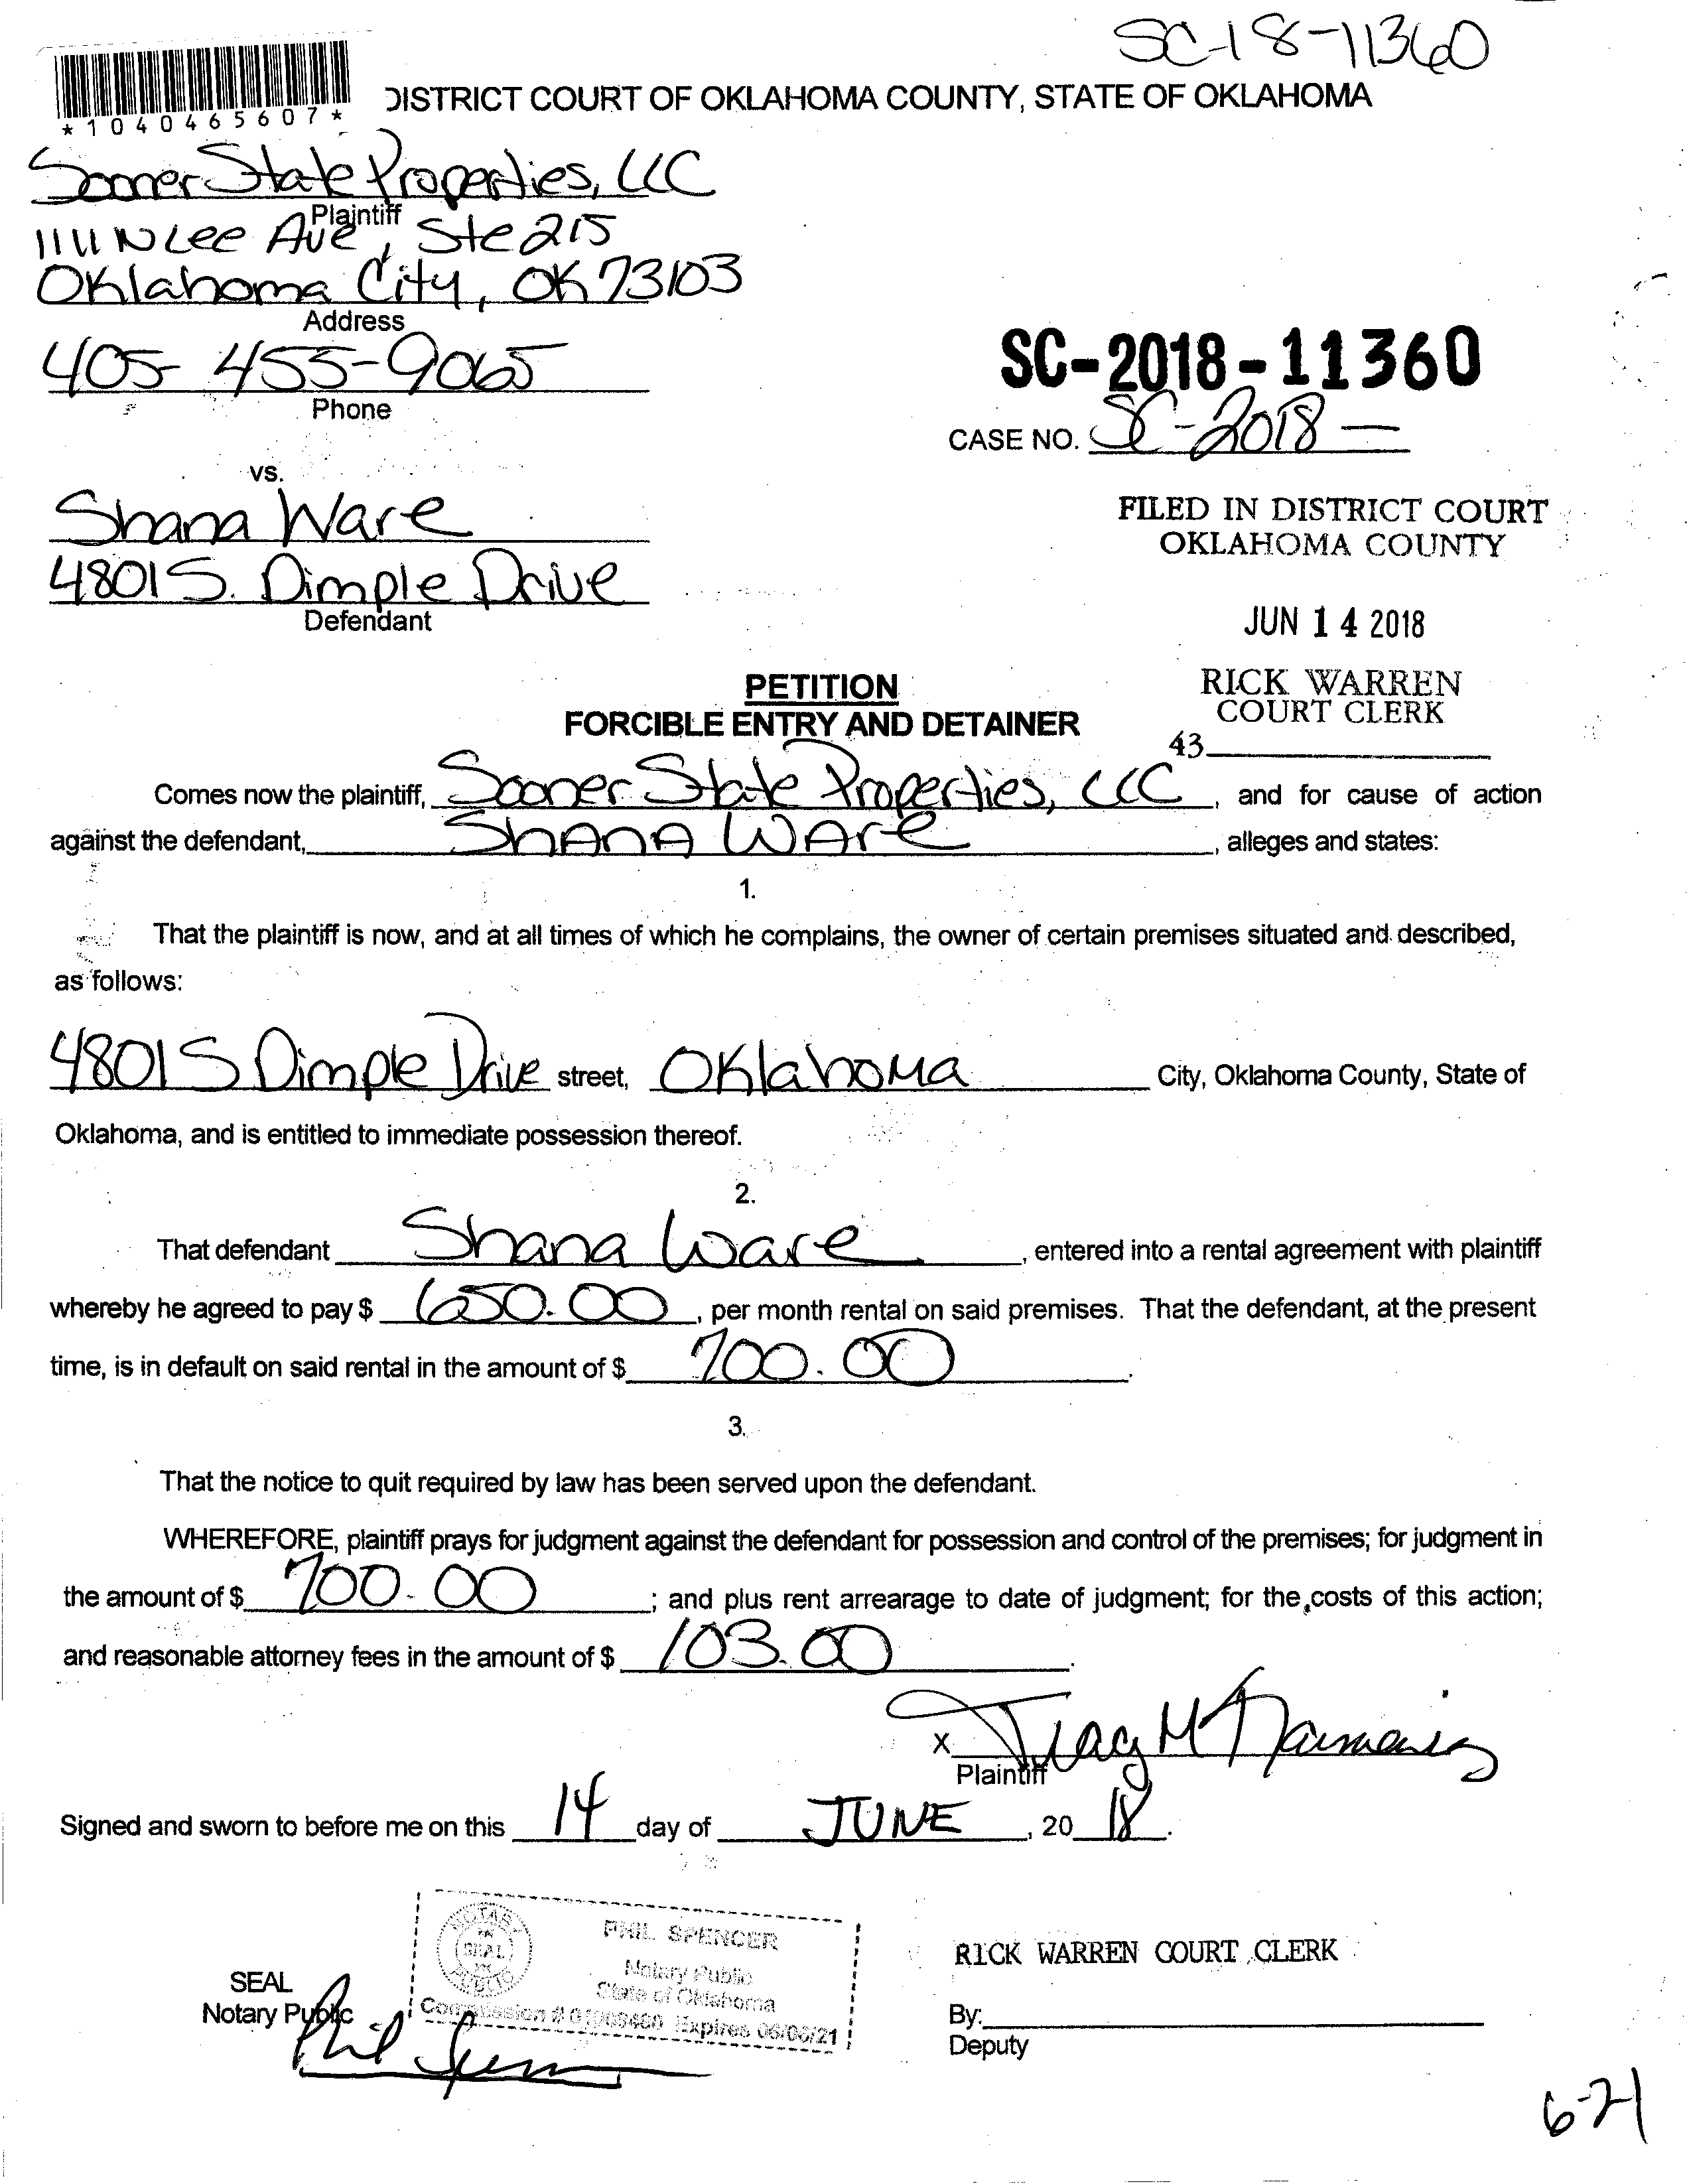 SC-18-11360
*1040465607*
DISTRICT COURT OF OKLAHOMA COUNTY, STATE OF OKLAHOMA
Sooner State Properties, LLC
Plaintiff
1111 N Lee Ave, Ste 215
Oklahoma City, OK 73103
Address
405-455-9065
Phone
SC-2018-11360
CASE NO. SC-2018-
vs.
Shana Ware
4801 S. Dimple Drive
Defendant
FILED IN DISTRICT COURT
OKLAHOMA COUNTY
JUN 14 2018
RICK WARREN
COURT CLERK
43
PETITION
FORCIBLE ENTRY AND DETAINER
Comes now the plaintiff, Sooner State Properties, LLC, and for cause of action
against the defendant, Shana Ware, alleges and states:
1.
That the plaintiff is now, and at all times of which he complains, the owner of certain premises situated and described,
as follows:
4801 S Dimple Drive street, Oklahoma City, Oklahoma County, State of
Oklahoma, and is entitled to immediate possession thereof.
2.
That defendant Shana Ware, entered into a rental agreement with plaintiff
whereby he agreed to pay $ 650.00, per month rental on said premises. That the defendant, at the present
time, is in default on said rental in the amount of $ 700.00.
3.
That the notice to quit required by law has been served upon the defendant.
WHEREFORE, plaintiff prays for judgment against the defendant for possession and control of the premises; for judgment in
the amount of $ 700.00; and plus rent arrearage to date of judgment; for the costs of this action;
and reasonable attorney fees in the amount of $ 103.00.
X Tracy M
Plaintiff
Signed and sworn to before me on this 14 day of JUNE, 20 18.
NOTARY
SEAL
PUBLIC
PHIL SPENCER
Notary Public
State of Oklahoma
Commission # Expires 06/06/21
SEAL
Notary Public
Phil Spencer
RICK WARREN COURT CLERK
By:
Deputy
6-21